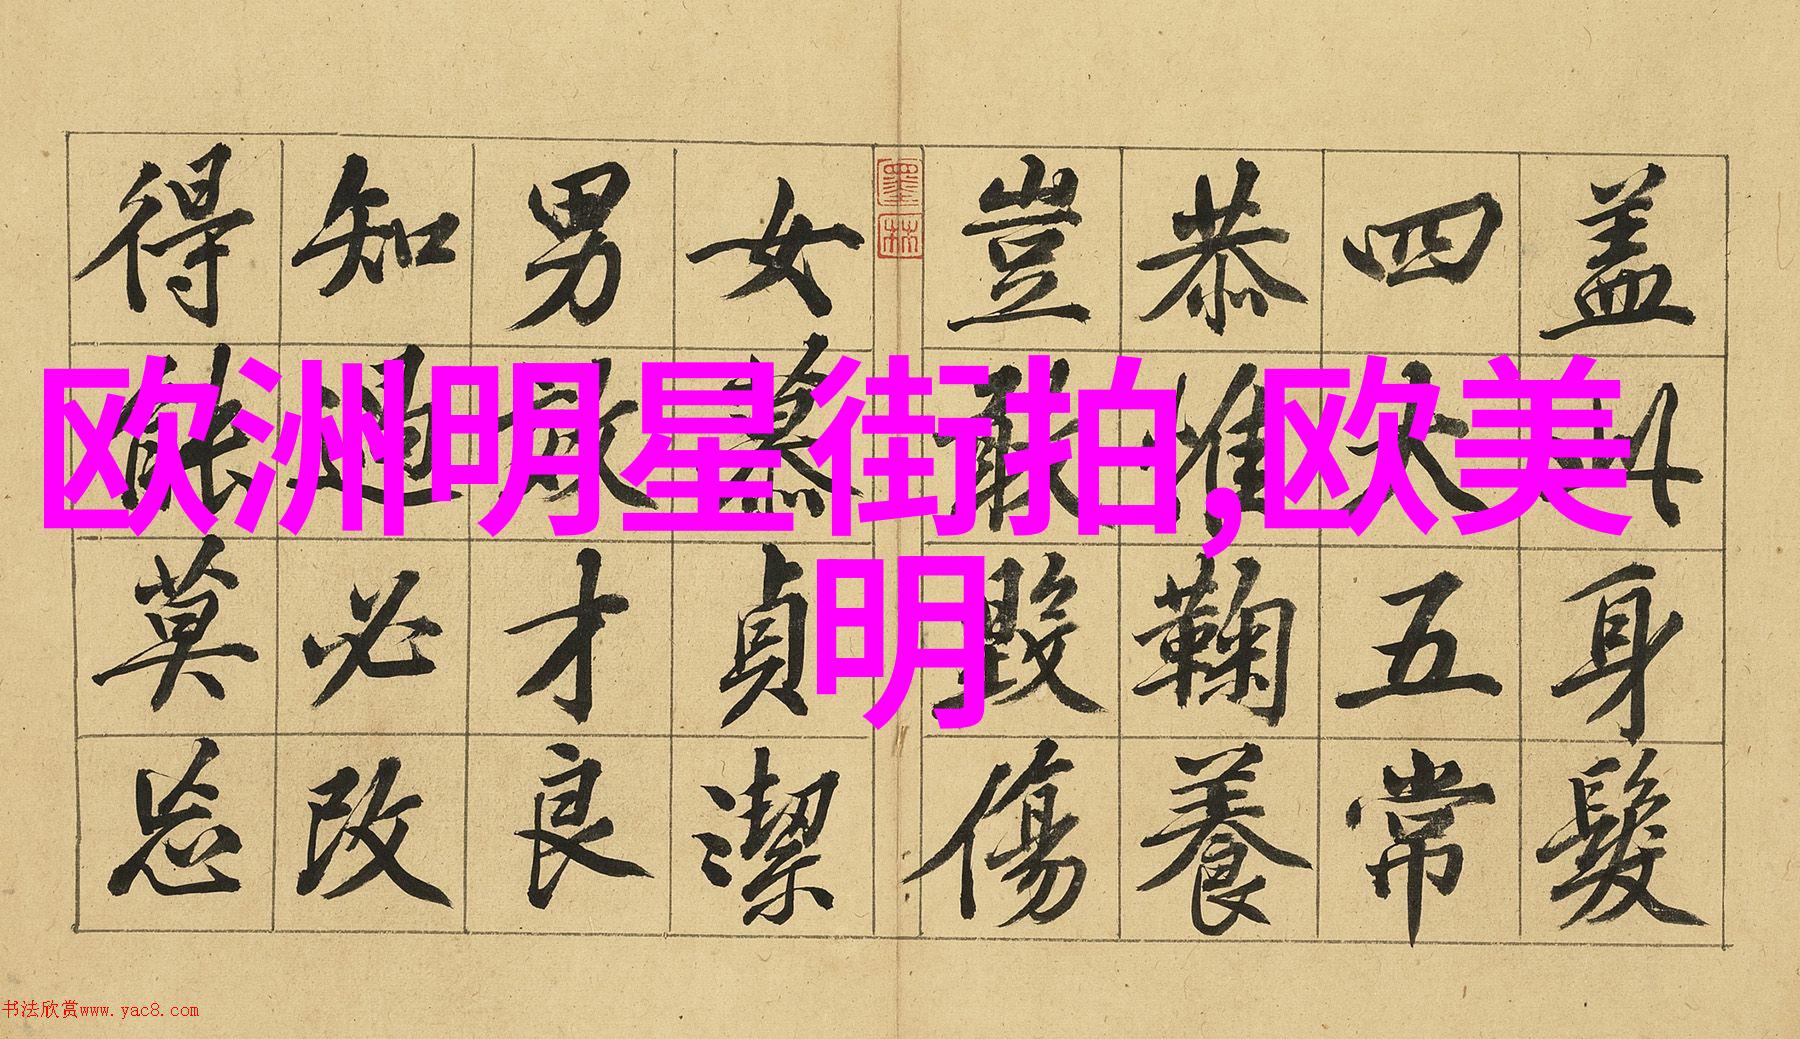 盖此身髮
四大五常
恭惟鞠養
豈敢毀傷
墨林
女慕貞潔
男效才良
知過必改
得能莫忘
欧洲明星街拍,欧美
明
书法欣赏www.yac8.com